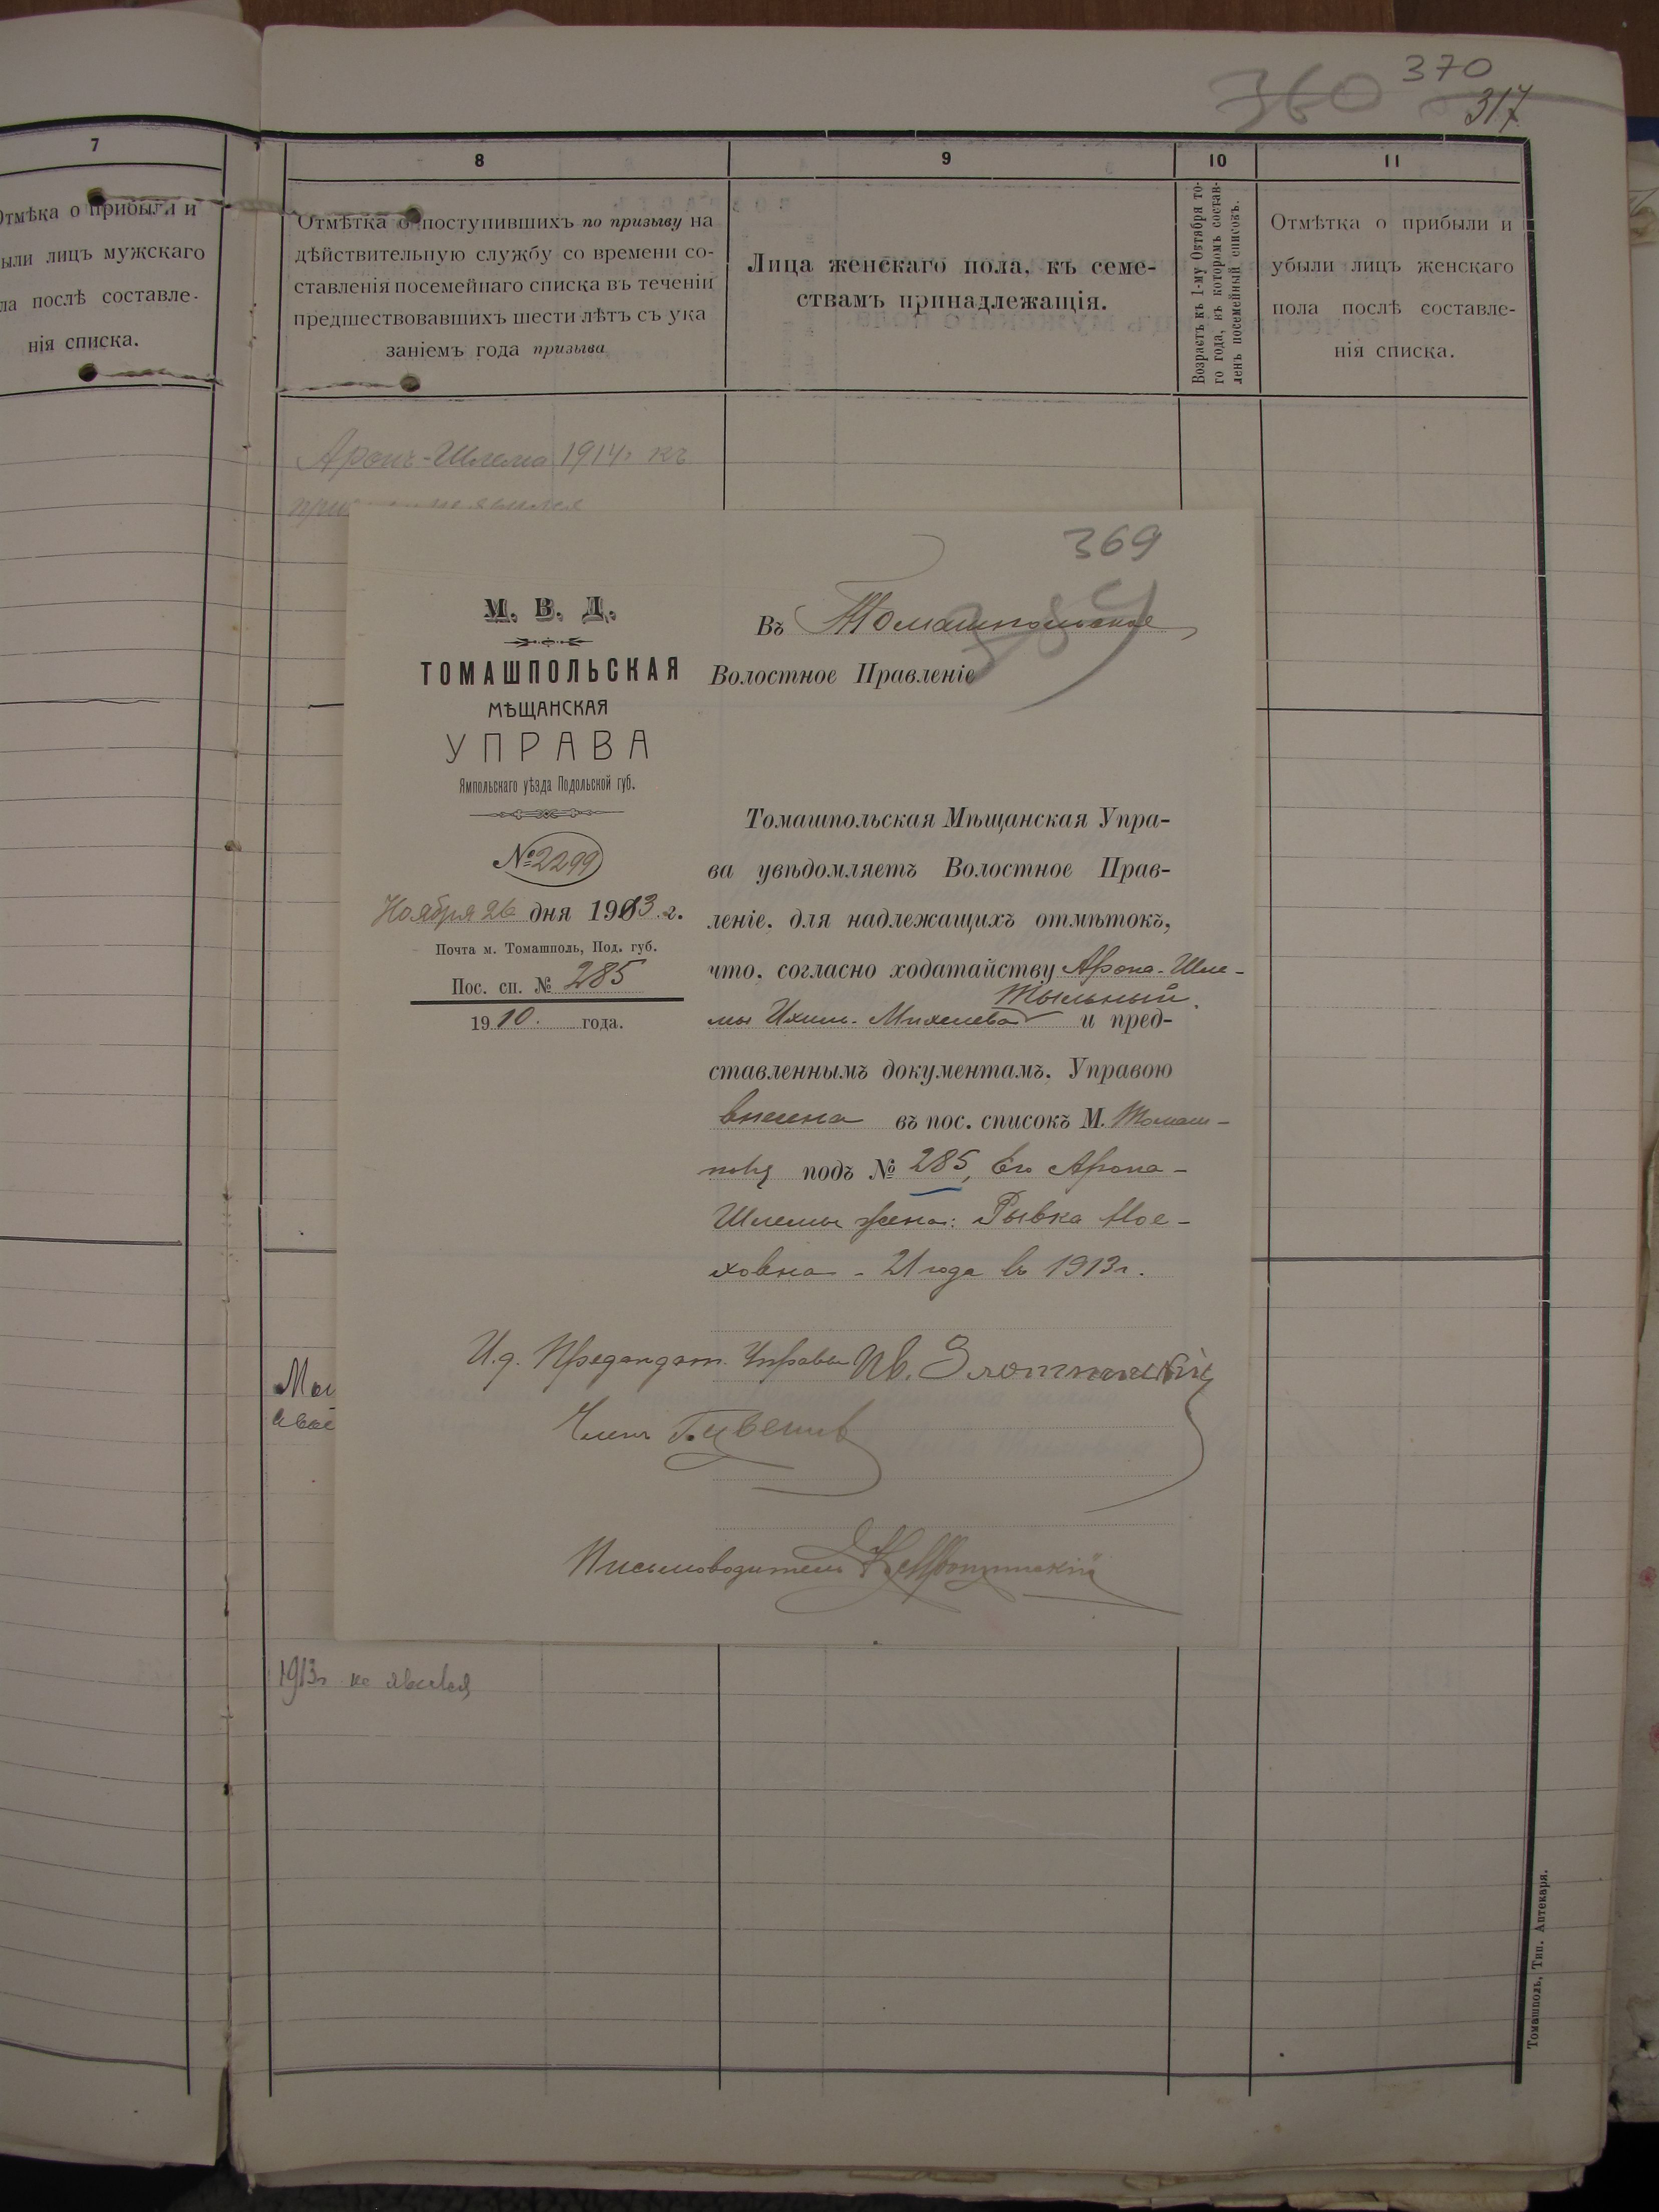 360
370
317
7
Отмѣка о прибыли и
ыли лицъ мужскаго
ла послѣ составле-
нія списка.
8
Отмѣтка о поступившихъ по призыву на
дѣйствительную службу со времени со-
ставленія посемейнаго списка въ теченіи
предшествовавшихъ шести лѣтъ съ ука
заніемъ года призыва
9
Лица женскаго пола, къ семе-
ствамъ принадлежащія.
10
Возрастъ къ 1-му Октября то-
го года, въ которомъ состав-
ленъ посемейный списокъ.
11
Отмѣтка о прибыли и
убыли лицъ женскаго
пола послѣ составле-
нія списка.
Аронъ-Шлема 1914г. къ
явился
369
М. В. Д.
ТОМАШПОЛЬСКАЯ
МѢЩАНСКАЯ
УПРАВА
Ямпольскаго уѣзда Подольской губ.
№ 2299
Ноября 26 дня 1913 г.
Почта м. Томашполь, Под. губ.
Пос. сп. № 285
1910. года.
Въ Томашпольское
Волостное Правленіе
Томашпольская Мѣщанская Упра-
ва увѣдомляетъ Волостное Прав-
леніе, для надлежащихъ отмѣтокъ,
что, согласно ходатайству Арона-Шле-
Тыльный
мы Ихил-Михелева и пред-
ставленнымъ документамъ, Управою
внесена въ пос. списокъ М. Томаш-
поля подъ № 285, его Арона-
Шлемы жена: Рывка Мое-
ховна - 21 года въ 1913г.
И.д. Предсѣдат. Управы Ив. Злотницкій
Членъ
Письмоводитель
1913г не явился
Томашполь, Тип. Аптекаря.